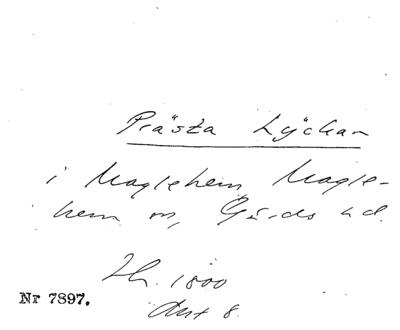 Prästa Lyckan
i Maglehem, Magle-
hem sn, Gärds hd.
1800
Nr 7897.